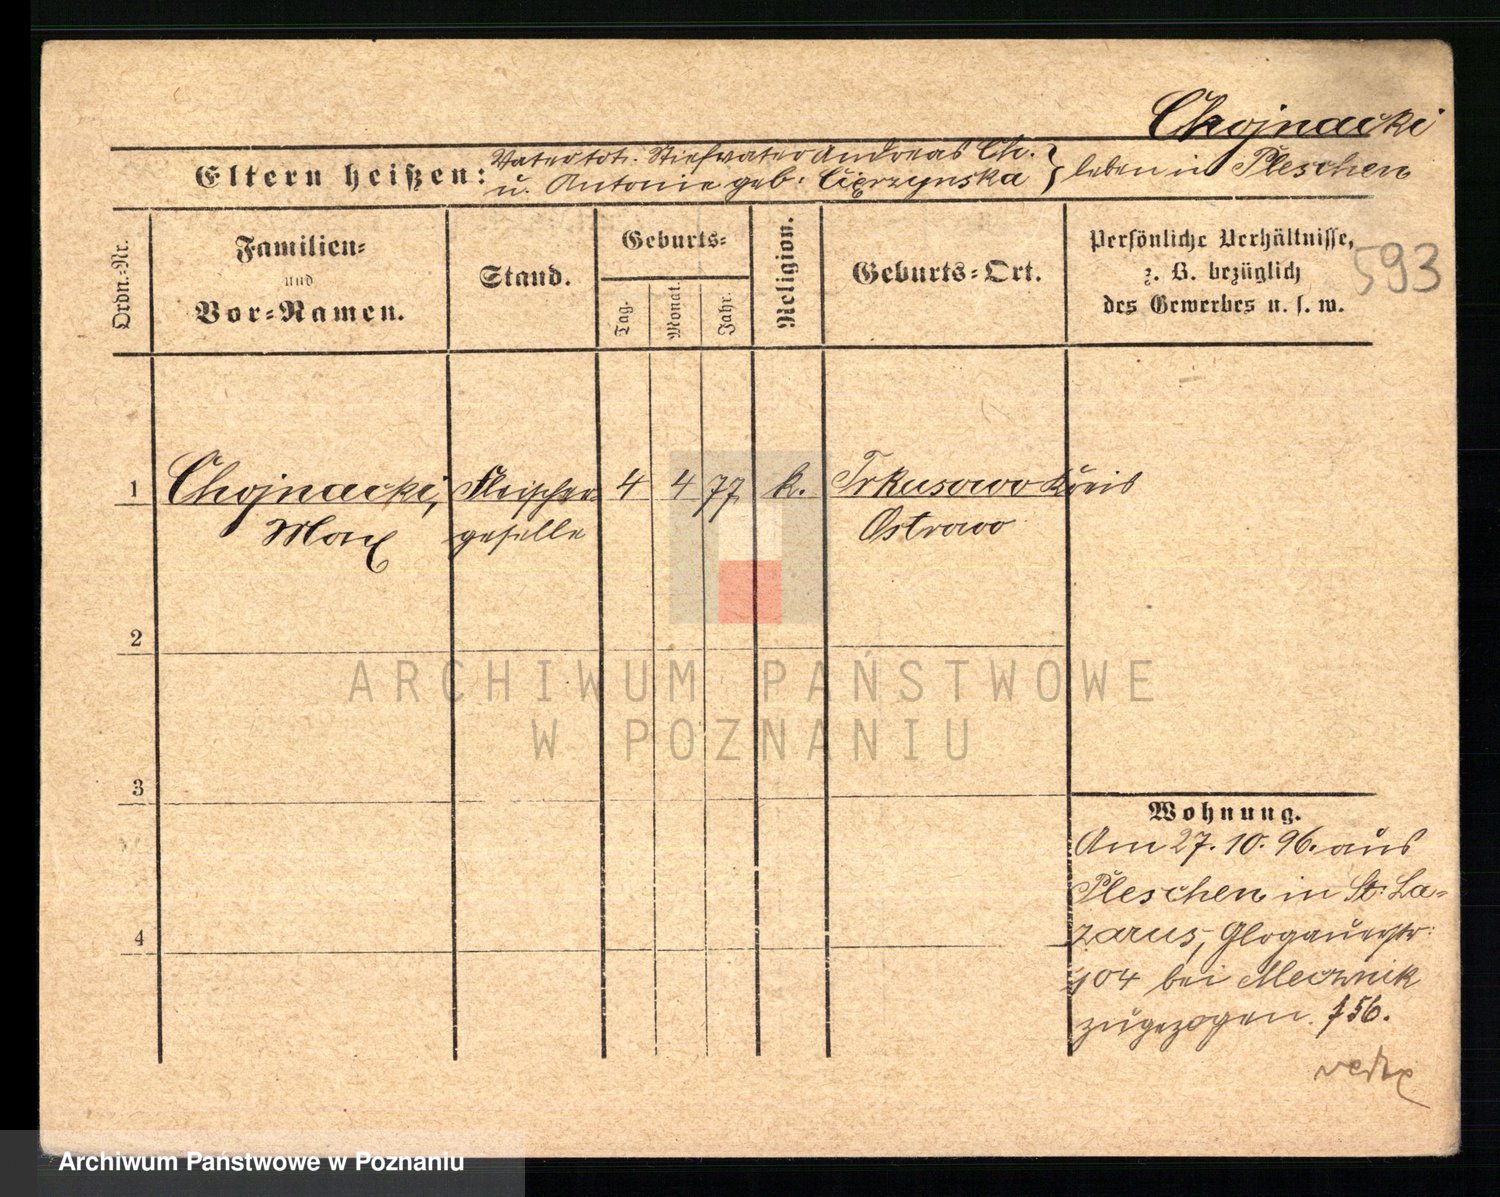 Chojnacki
Eltern heißen: Vater tot. Stiefvater Andreas Ch.
u. Antonie geb: Cierzynska } leben in Pleschen
593
Ordn.-Nr.
Familien-
und
Vor-Namen.
Stand.
Geburts-
Tag.
Monat.
Jahr.
Religion.
Geburts-Ort.
Persönliche Verhältnisse,
z. B. bezüglich
des Gewerbes u. s. w.
1 Chojnacki, Fleischer- 4 4 77 k. Trkusowo Kreis
Max geselle Ostrowo
2
3
4
Wohnung.
Am 27. 10. 96. aus
Pleschen in St. La-
zarus, Glogauerstr.
104 bei
zugezogen. 156.
ARCHIWUM PAŃSTWOWE
W POZNANIU
Archiwum Państwowe w Poznaniu